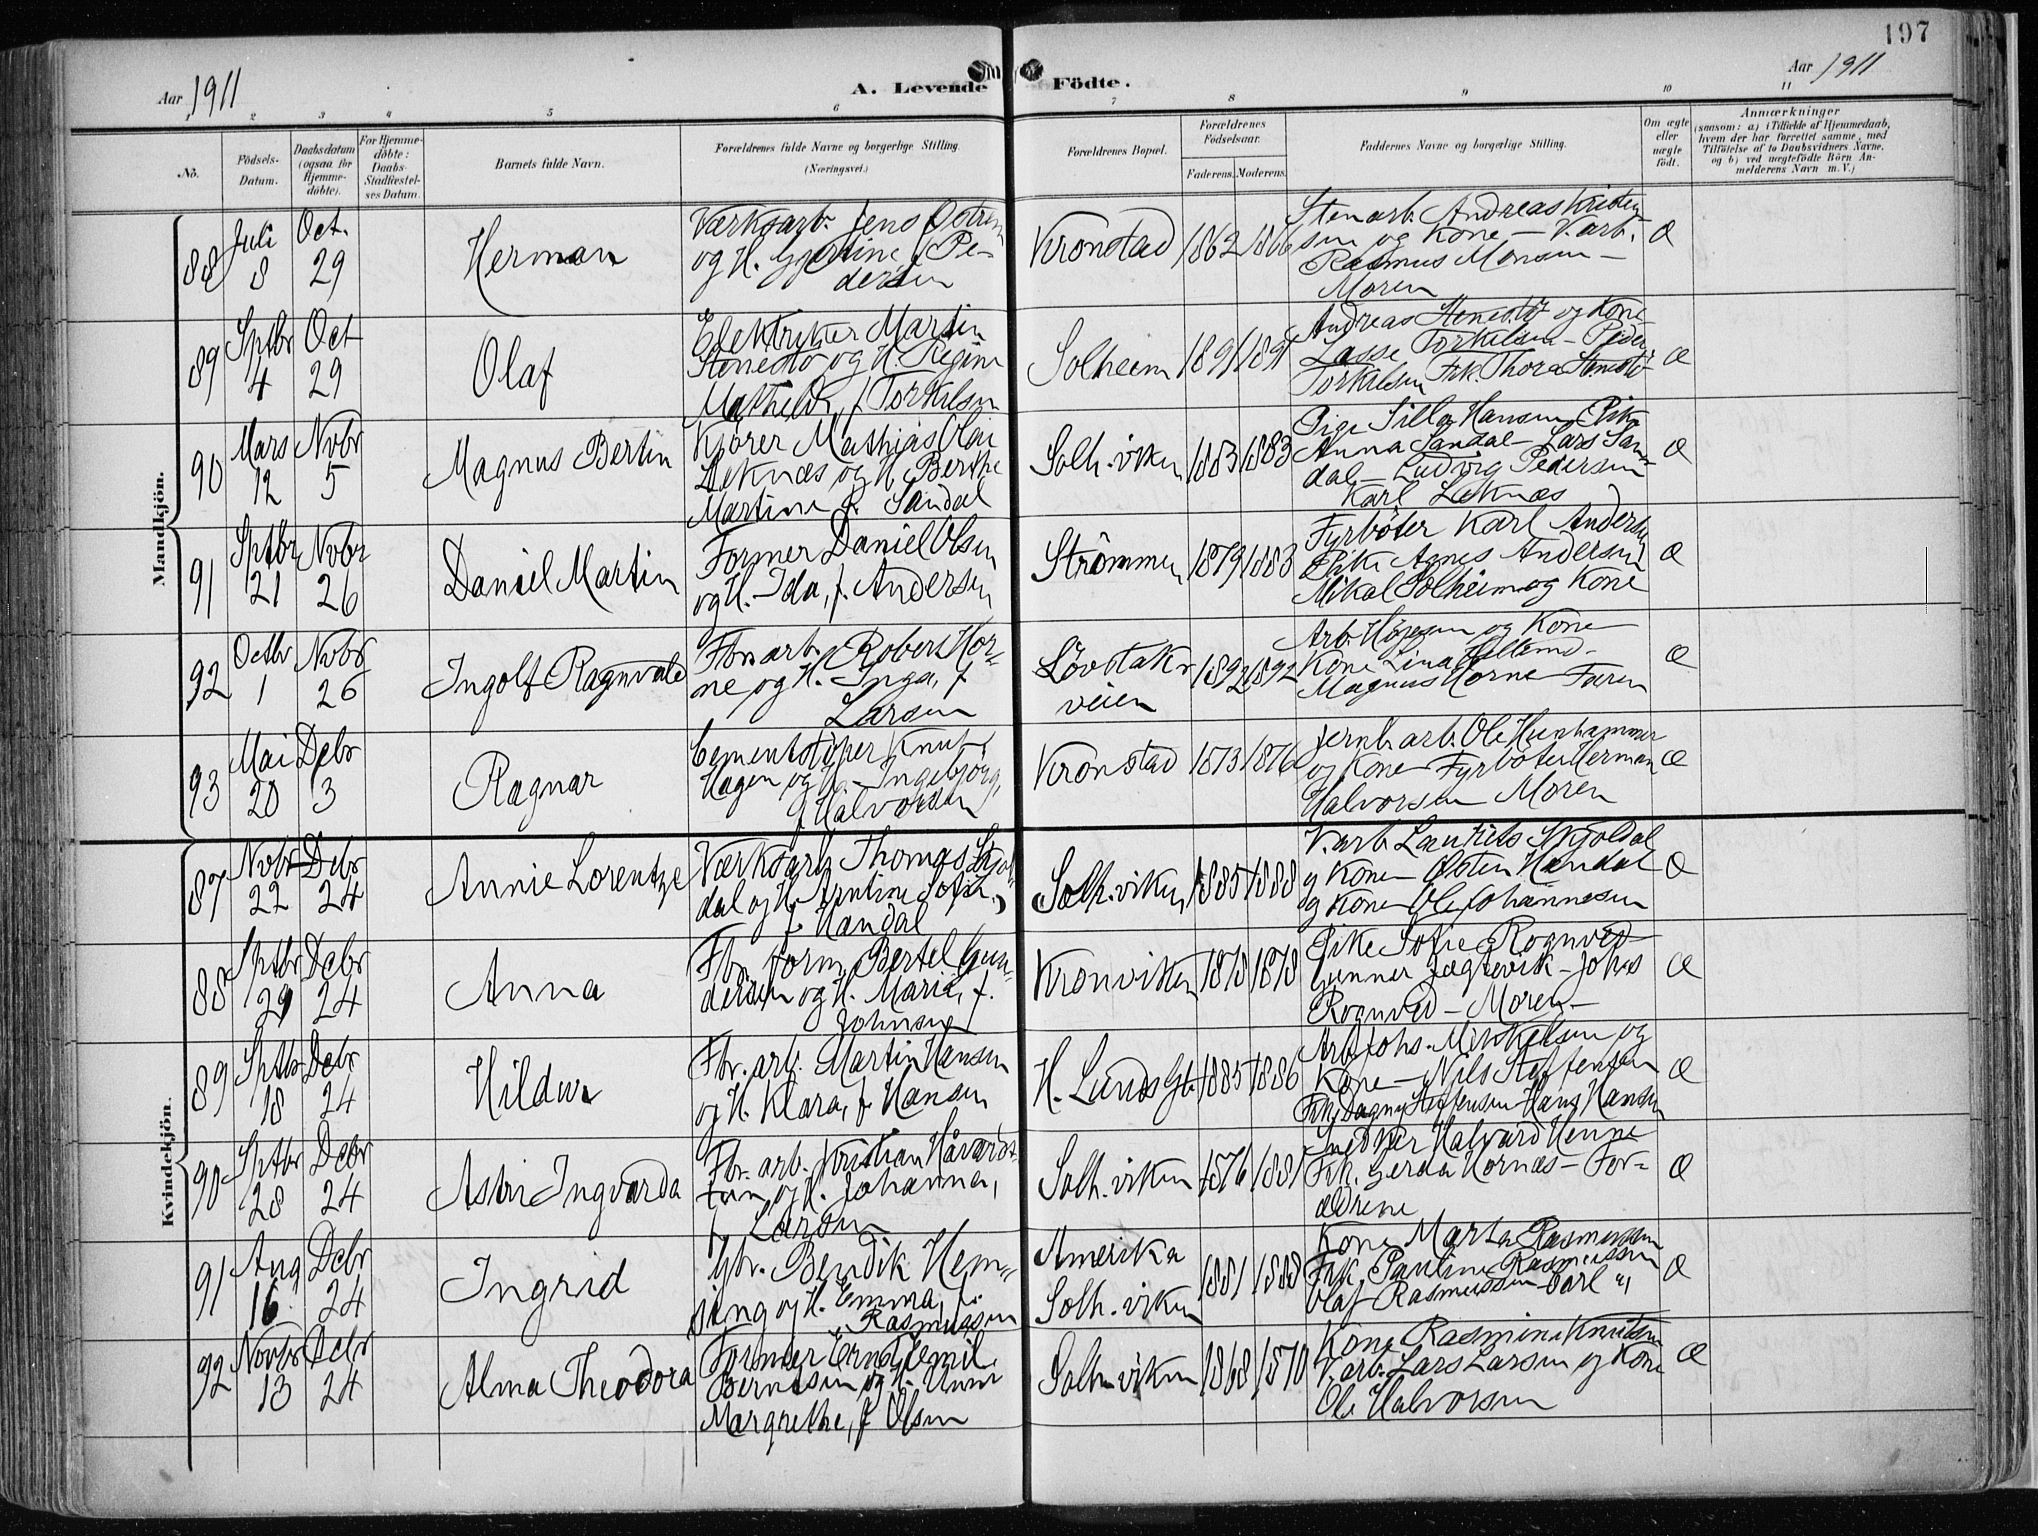 197
Aar 1911
A. Levende Födte.
Aar 1911
1 2 3 4 5 6 7 8 9 10 11
No.
Födsels-Datum.
Daabsdatum (ogsaa for Hjemmedöbte).
For Hjemmedöbte: Daabs-Stadfæstelses Datum.
Barnets fulde Navn.
Forældrenes fulde Navne og borgerlige Stilling. (Næringsvei.)
Forældrenes Bopæl.
Forældrenes Födselsaar.
Faderens. Moderens.
Faddernes Navne og borgerlige Stilling.
Om ægte eller uægte födt.
Anmærkninger
(saasom: a) i Tilfælde af Hjemmedaab, hvem der har forrettet samme, med Tilföielse af to Daabsvidners Navne, og b) ved uægtefödte Börn Anmelderens Navn m. V.)
Mandkjön.
88 Juli 8 Oct. 29 Herman
Værksarb. Jens
og H. Gjertine f. Pe-
dersen
Kronstad 1862 1866
Stenarb. Andreas Kristen-
sen og Kone - V.arb.
Rasmus Monsen -
Moren
Æ
89 Sptbr 4 Oct 29 Olaf
Elektriker Martin
Stenestö og H. Regine
Mathilde, f. Torkilsen
Solheim 1891 1891
Andreas Stenestö og Kone
Lasse Torkelsen - Peder
Torkelsen Frk. Thora Stenestö
Æ
90 Mars 12 Nvbr 5 Magnus Bertin
Kjörer Mathias Olai
Leknæs og H. Berthe
Martine f. Sandal
Solh.viken 1883 1883
Pige Silla Hansen Pike
Anna Sandal - Lars San-
dal - Ludvig Pedersen
Karl Leknæs
Æ
91 Sptbr 21 Nvbr 26 Daniel Martin
Former Daniel Olsen
og H. Ida, f. Andersen
Strömmen 1879 1883
Fyrböter Karl Andersen
Pike Agnes Andersen
Mikal Solheim og Kone
Æ
92 Octbr 1 Nvbr 26 Ingolf Ragnvald
Fbr.arb. Robert Hor-
ne og H. Inga, f
Larsen
Lövstakveien 1892 1892
Kone Lina
Magnus Horne Faren
Æ
93 Mai 20 Dcbr 3 Ragnar
Cementstöper Knut
Hagen og H. Ingebjörg,
f Halvorsen
Kronstad 1873 1876
Jernb.arb. Ole
og Kone Fyrböter Herman
Halvorsen Moren
Æ
Kvindekjön.
87 Nvbr 22 Dcbr 24 Annie Lorentze
Værksarb Thomas Skjol-
dal og H. Arntine Sofie,
f Handal
Solh.viken 1885 1888
V.arb. Lauritz Skjoldal
og Kone Östen Handal
og Kone Ole Johannesen
Æ
88 Sptbr 29 Dcbr 24 Anna
Fbr. form. Bertel Gun-
dersen og H. Maria, f.
Johnsen
Kronviken 1878 1878
Pike Sofie Rognved
Gunner Jægtevik - Johs
Rognved - Moren -
Æ
89 Sptbr 18 Dcbr 24 Hildur
Fbr. arb. Martin Hansen
og H. Klara, f Hansen
H. Lunds Gt. 1885 1886
Arb Johs. Mikkelsen og
Kone - Nils Steffensen
Frk. Dagny Steffensen Hans Hansen
Æ
90 Sptbr 28 Dcbr 24 Astri Ingvarda
Fbr. arb. Kristian Håvards-
tun og H. Johanna,
f Larsen
Solh.viken 1876 1881
Snedker Halvard Henne
Frk. Gerda Hornæs - For-
ældrene
Æ
91 Aug 16 Dcbr 24 Ingrid
Gbr. Bendik Hem-
sing og H. Emma, f.
Rasmussen
Amerika
Solh.viken
1881 1888
Kone Marta Rasmussen
Frk Pauline Rasmussen
Olaf Rasmussen - Carl "
Æ
92 Novbr 13 Dcbr 24 Alma Theodora
Former Ernst Emil
Berntsen og H. Anne
Margrethe, f Olsen
Solh.viken 1868 1870
Kone Rasmine Knutsen
V.arb. Lars Larsen og Kone
Ole Halvorsen
Æ